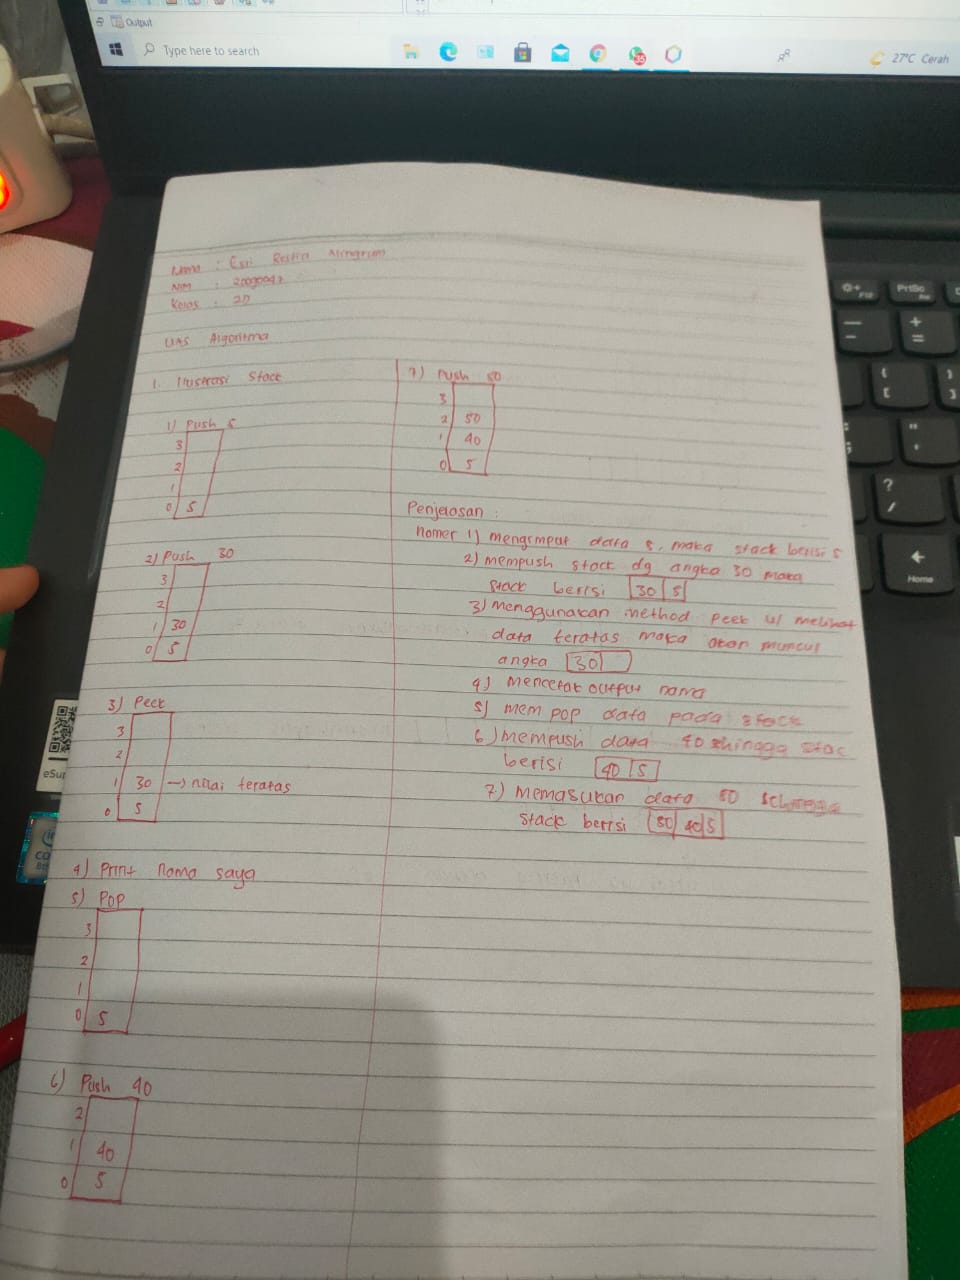 Output
Type here to search
35
27°C Cerah
Nama : Esri Restia Ningrum
NIM : 20090047
Kelas : 2D
UAS Algoritma
1. Ilustrasi Stack
1) Push 5
3
2
1
0 5
2) Push 30
3
2
1 30
0 5
3) Peek
3
2
1 30 → nilai teratas
0 5
4) Print nama saya
5) POP
3
2
1
0 5
6) Push 40
2
1 40
0 5
7) Push 50
3
2 50
1 40
0 5
Penjelasan :
nomer 1) mengimput data 5, maka stack berisi 5
2) mempush stack dg angka 30 maka
stack berisi 30 5
3) menggunakan method Peek u/ melihat
data teratas maka akan muncul
angka 30
4) Mencetak output nama
5) mem pop data pada stack
6) mempush data 40 shingga stac
berisi 40 5
7) Memasukan data 50 sehingga
stack berisi 50 40 5
PrtSc
Home